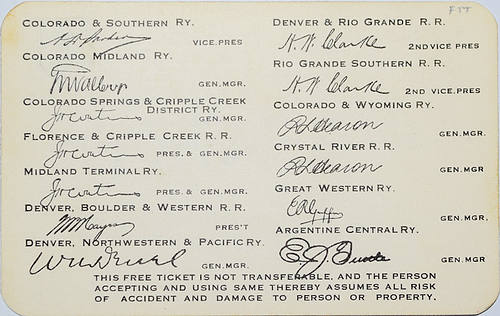 COLORADO & SOUTHERN RY.
VICE. PRES
COLORADO MIDLAND RY.
GEN. MGR.
COLORADO SPRINGS & CRIPPLE CREEK
DISTRICT RY.
GEN. MGR.
FLORENCE & CRIPPLE CREEK R. R.
PRES. & GEN. MGR.
MIDLAND TERMINAL RY.
PRES. & GEN. MGR.
DENVER, BOULDER & WESTERN R. R.
PRES'T
DENVER, NORTHWESTERN & PACIFIC RY.
GEN. MGR.
DENVER & RIO GRANDE R. R.
2ND VICE PRES
RIO GRANDE SOUTHERN R. R.
2ND VICE PRES
COLORADO & WYOMING RY.
GEN. MGR.
CRYSTAL RIVER R. R.
GEN. MGR
GREAT WESTERN RY.
GEN. MGR.
ARGENTINE CENTRAL RY.
GEN. MGR
THIS FREE TICKET IS NOT TRANSFERABLE, AND THE PERSON
ACCEPTING AND USING SAME THEREBY ASSUMES ALL RISK
OF ACCIDENT AND DAMAGE TO PERSON OR PROPERTY.